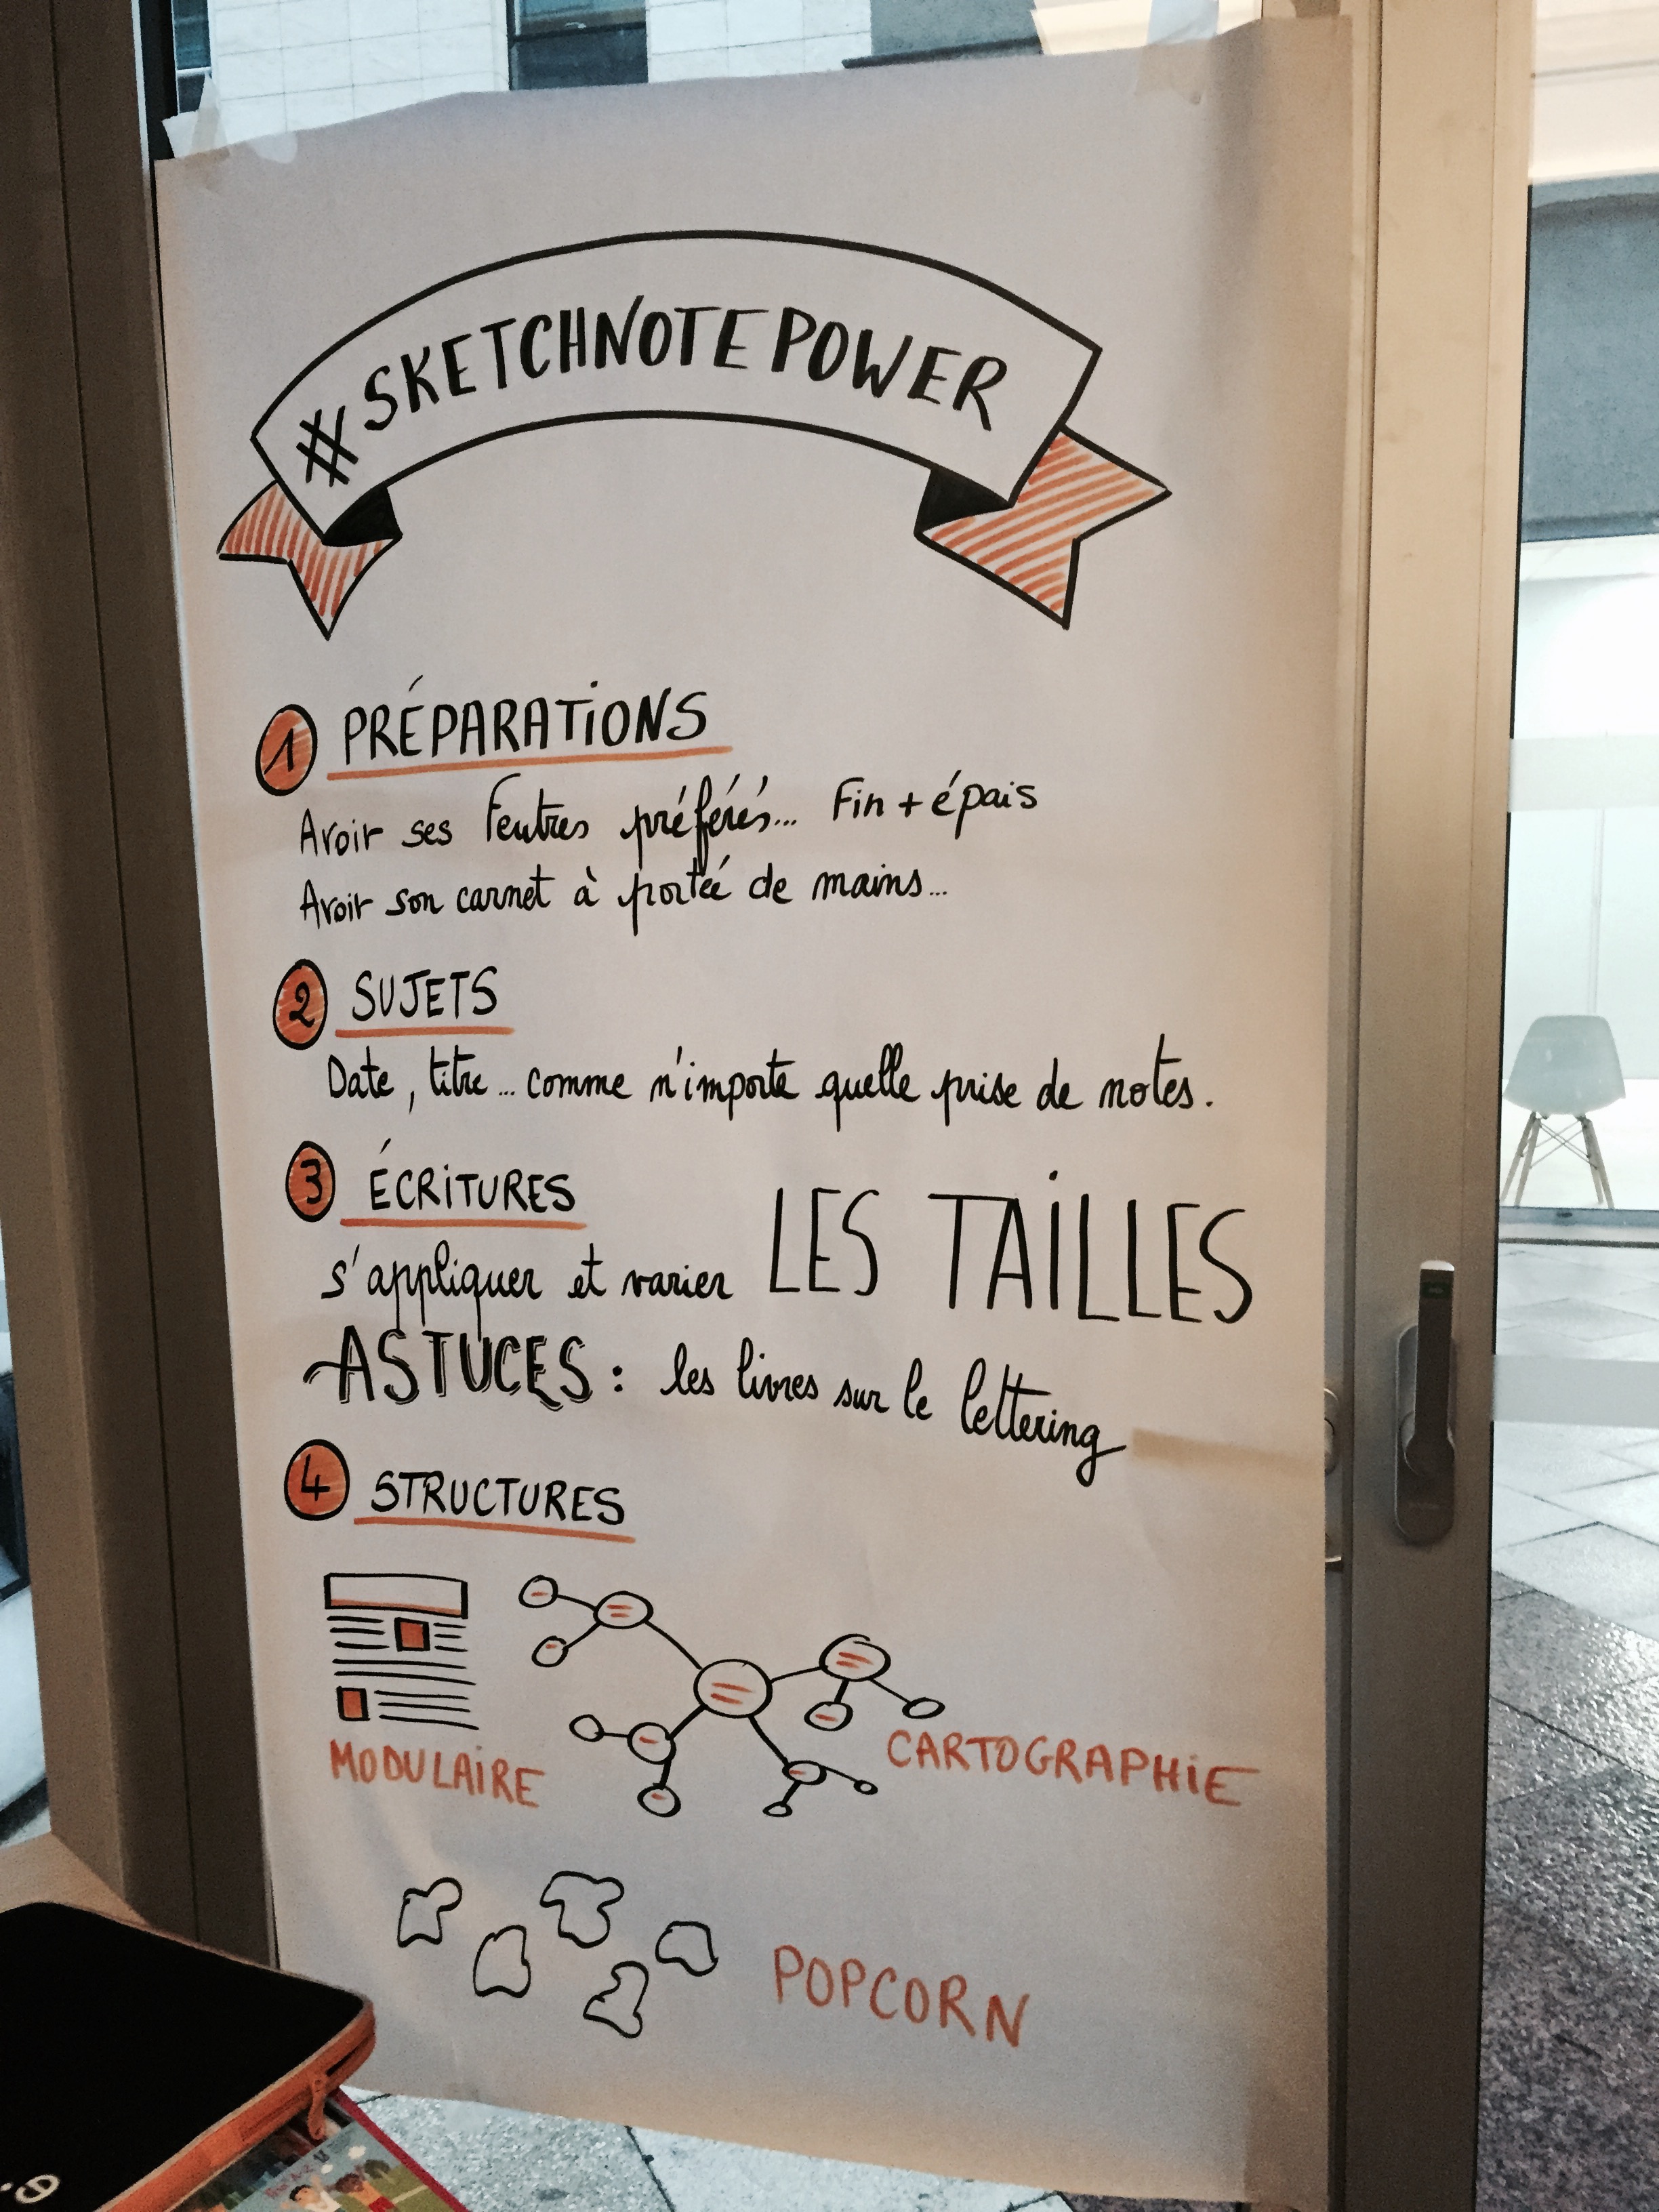 #SKETCHNOTE POWER
1 PRÉPARATIONS
Avoir ses feutres préférés... Fin + épais
Avoir son carnet à portée de mains...
2 SUJETS
Date, titre... comme n'importe quelle prise de notes.
3 ÉCRITURES
s'appliquer et varier LES TAILLES
ASTUCES : les livres sur le lettering
4 STRUCTURES
MODULAIRE
CARTOGRAPHIE
POPCORN